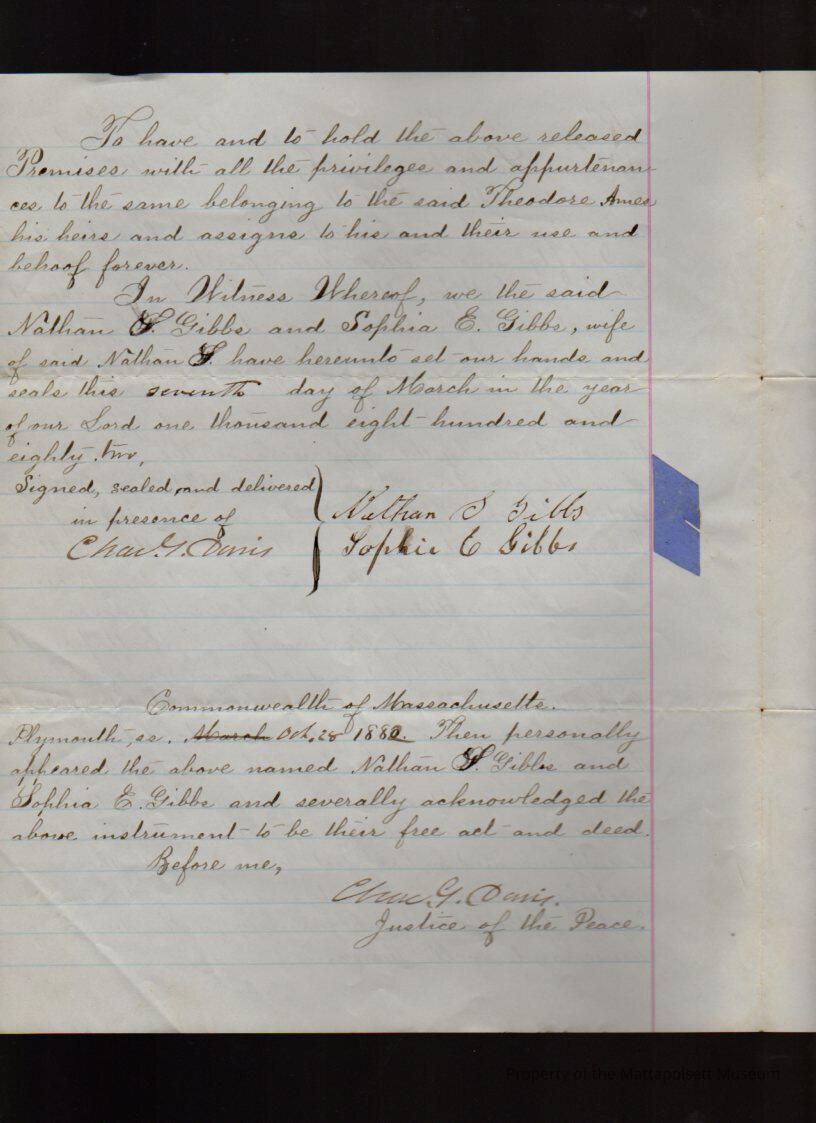 To have and to hold the above released
Premises with all the privileges and appurtenan-
ces to the same belonging to the said Theodore Ames
his heirs and assigns to his and their use and
behoof forever.
In Witness Whereof, we the said
Nathan S. Gibbs and Sophia E. Gibbs, wife
of said Nathan S. have hereunto set our hands and
seals this seventh day of March in the year
of our Lord one thousand eight hundred and
eighty two,
Signed, sealed and delivered
in presence of
Chas. G. Davis
Nathan S Gibbs
Sophia E Gibbs
Commonwealth of Massachusetts.
Plymouth, ss. March Oct. 28 1882. Then personally
appeared the above named Nathan S. Gibbs and
Sophia E. Gibbs and severally acknowledged the
above instrument to be their free act and deed.
Before me,
Chas. G. Davis.
Justice of the Peace.
Property of the Mattapoisett Museum